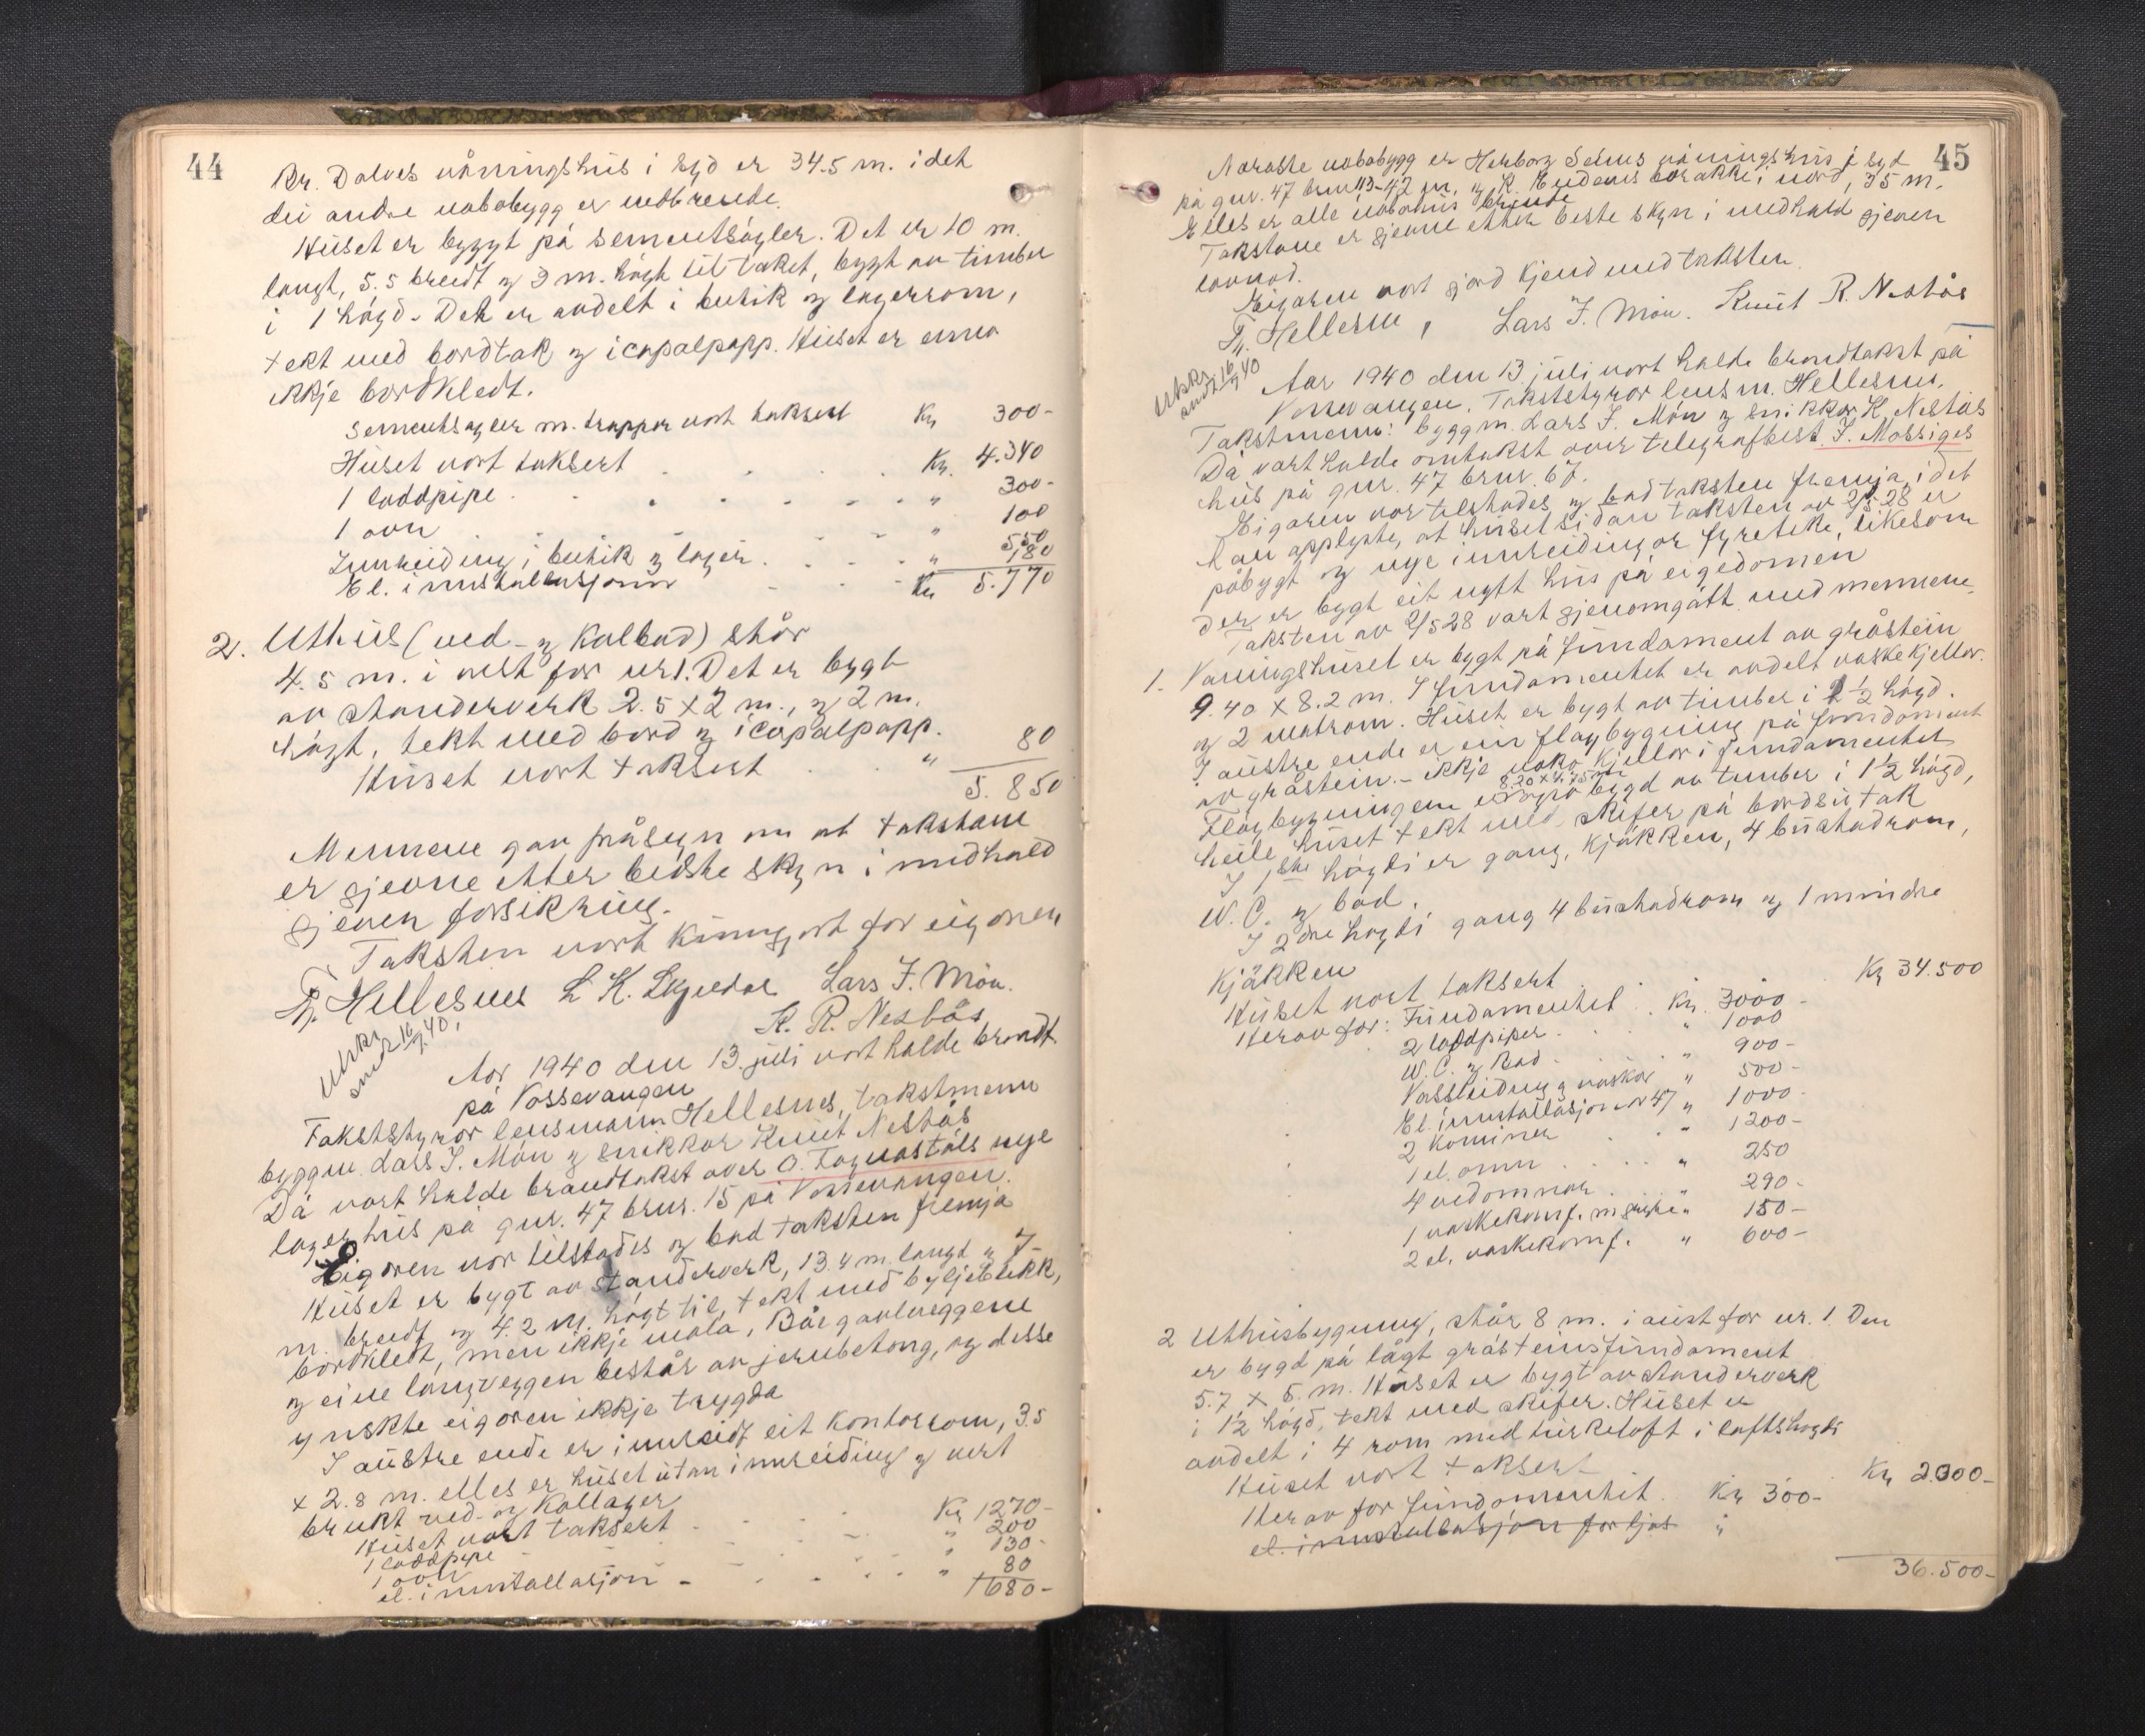 44
Br. Dalves våningshus i syd er 34.5 m. idet
dei andre nabobygg er nedbrende.
Huset er byggt på sementsøyler. Det er 10 m.
langt, 5.5 breidt og 3 m. høgt til taket, bygt av timber
i 1 høgd. Det er avdelt i butik og lagerrom,
tekt med bordtak og icopalpapp. Huset er enno
ikkje bordkledt.
Sementsøyler m. trappor vart taksert Kr 300-
Huset vart taksert Kr. 4.340
1 loddpipe " 300-
1 ovn " 100
Innreiding i butik og lager " 550
El. installasjonen " 180
Kr 5.770
2. Uthus (ved- og kolbod) står
4.5 m. i vest for nr 1. Det er bygt
av standerverk 2.5 x 2 m., og 2 m.
høgt, tekt med bord og icopalpapp.
Huset vart taksert " 80
5.850
Mennene gav fråsegn om at takstane
er gjevne etter beste skyn i medhald
gjeven forsikring.
Taksten vart kunngjort for eigaren
Hellesnes L K. Lars J. Møn.
K. R. Nesbøs
Utskr.
send 16/9 40.
Aar 1940 den 13. juli vart halde brandt.
på Vossevangen
Takststyrar lensmann Hellesnes, takstmenn
byggm. Lars J. Møn og snikkar Knut Nesbøs
Då vart halde brandtakst over O. Fagnastøls nye
lagerhus på gnr. 47 brnr. 15 på Vossevangen.
Eigaren var tilstades og bad taksten fremja
Huset er bygt av standerverk, 13.4 m. langt og 7-
m. breidt og 4.2 m. høgt til, tekt med bylgjeblekk,
bordkledt, men ikkje mala, Båe gavlveggene
og eine langveggen består av jernbetong, og desse
ynskte eigaren ikkje trygda
I austre ende er innreidt eit kontorrom, 3.5
x 2.8 m. elles er huset utan innreiding og vert
brukt ved- og kollager
Huset vart taksert Kr 1270-
1 loddpipe " 200
1 ovn " 130-
el. installasjon - " 80
1680-
45
Næraste nabobygg er Herborg Selms våningshus i syd
på gnr. 47 brnr 113-42 m. og K. barakke i nord, 35 m.
Elles er alle nabohus brende
Takstane er gjevne etter beste skyn i medhald gjeven
lovnad.
Eigaren vart gjord kjend med taksten.
Hellesnes, Lars J. Møn. Knut R. Nesbøs
Utskr.
sendt 16/9 40
Aar 1940 den 13. juli vart halde brandtakst på
Vossevangen. Takststyrar lensm. Hellesnes.
Takstmenn: byggm. Lars J. Møn og snikkar K. Nesbøs
Då vart halde omtakst over telegrafbest. J. Mossiges
hus på gnr. 47 brnr. 67.
Eigaren var tilstades og bad taksten fremja, idet
han opplyste, at huset sidan taksten av 2/5 28 er
påbygt og nye innreidingar fyreteke, likesom
der er bygt eit nytt hus på eigedomen
Taksten av 2/5 28 vart gjenomgått med mennene.
1. Våningshuset er bygt på fundament av gråstein
9.40 x 8.2 m. I fundamentet er avdelt vaskekjellar
og 2 matrom. Huset er bygt av timber i 1½ høgd.
I austre ende er ein fløybygning på fundament
av gråstein. - ikkje noko kjellar i fundamentet
8.20 x 4.75 m
Fløybygningen er også bygd av timber i 1½ høgd,
heile huset tekt med skifer på bordsutak
I 1ste høgdi er gang, kjøkken, 4 bustadrom,
W.C. og bad.
I 2dre høgdi gang 4 bustadrom og 1 mindre
kjøkken
Huset vart taksert Kr 34.500
Herav for: Fundamentet Kr. 3000-
2 loddpiper. " 1000
W.C. og Bad " 900-
Vassleiding og vaskar " 500-
El. installasjon nr 47 " 1000-
2 kaminer " 1200-
1 el. omn " 250
4 vedomnar " 290-
1 vaskekomf. m gryte " 150-
2 el. vaskekomf. " 600-
2 Uthusbygning, står 8 m. i aust for nr. 1. Den
er bygd på lågt gråsteinsfundament
5.7 x 5. m. Huset er bygt av standerverk
i 1½ høgd, tekt med skifer. Huset er
avdelt i 4 rom med turkeloft i loftshøgdi
Huset vart taksert Kr 2000-
Herav for fundamentet Kr 300-
el. installasjon for ljos "
36.500-